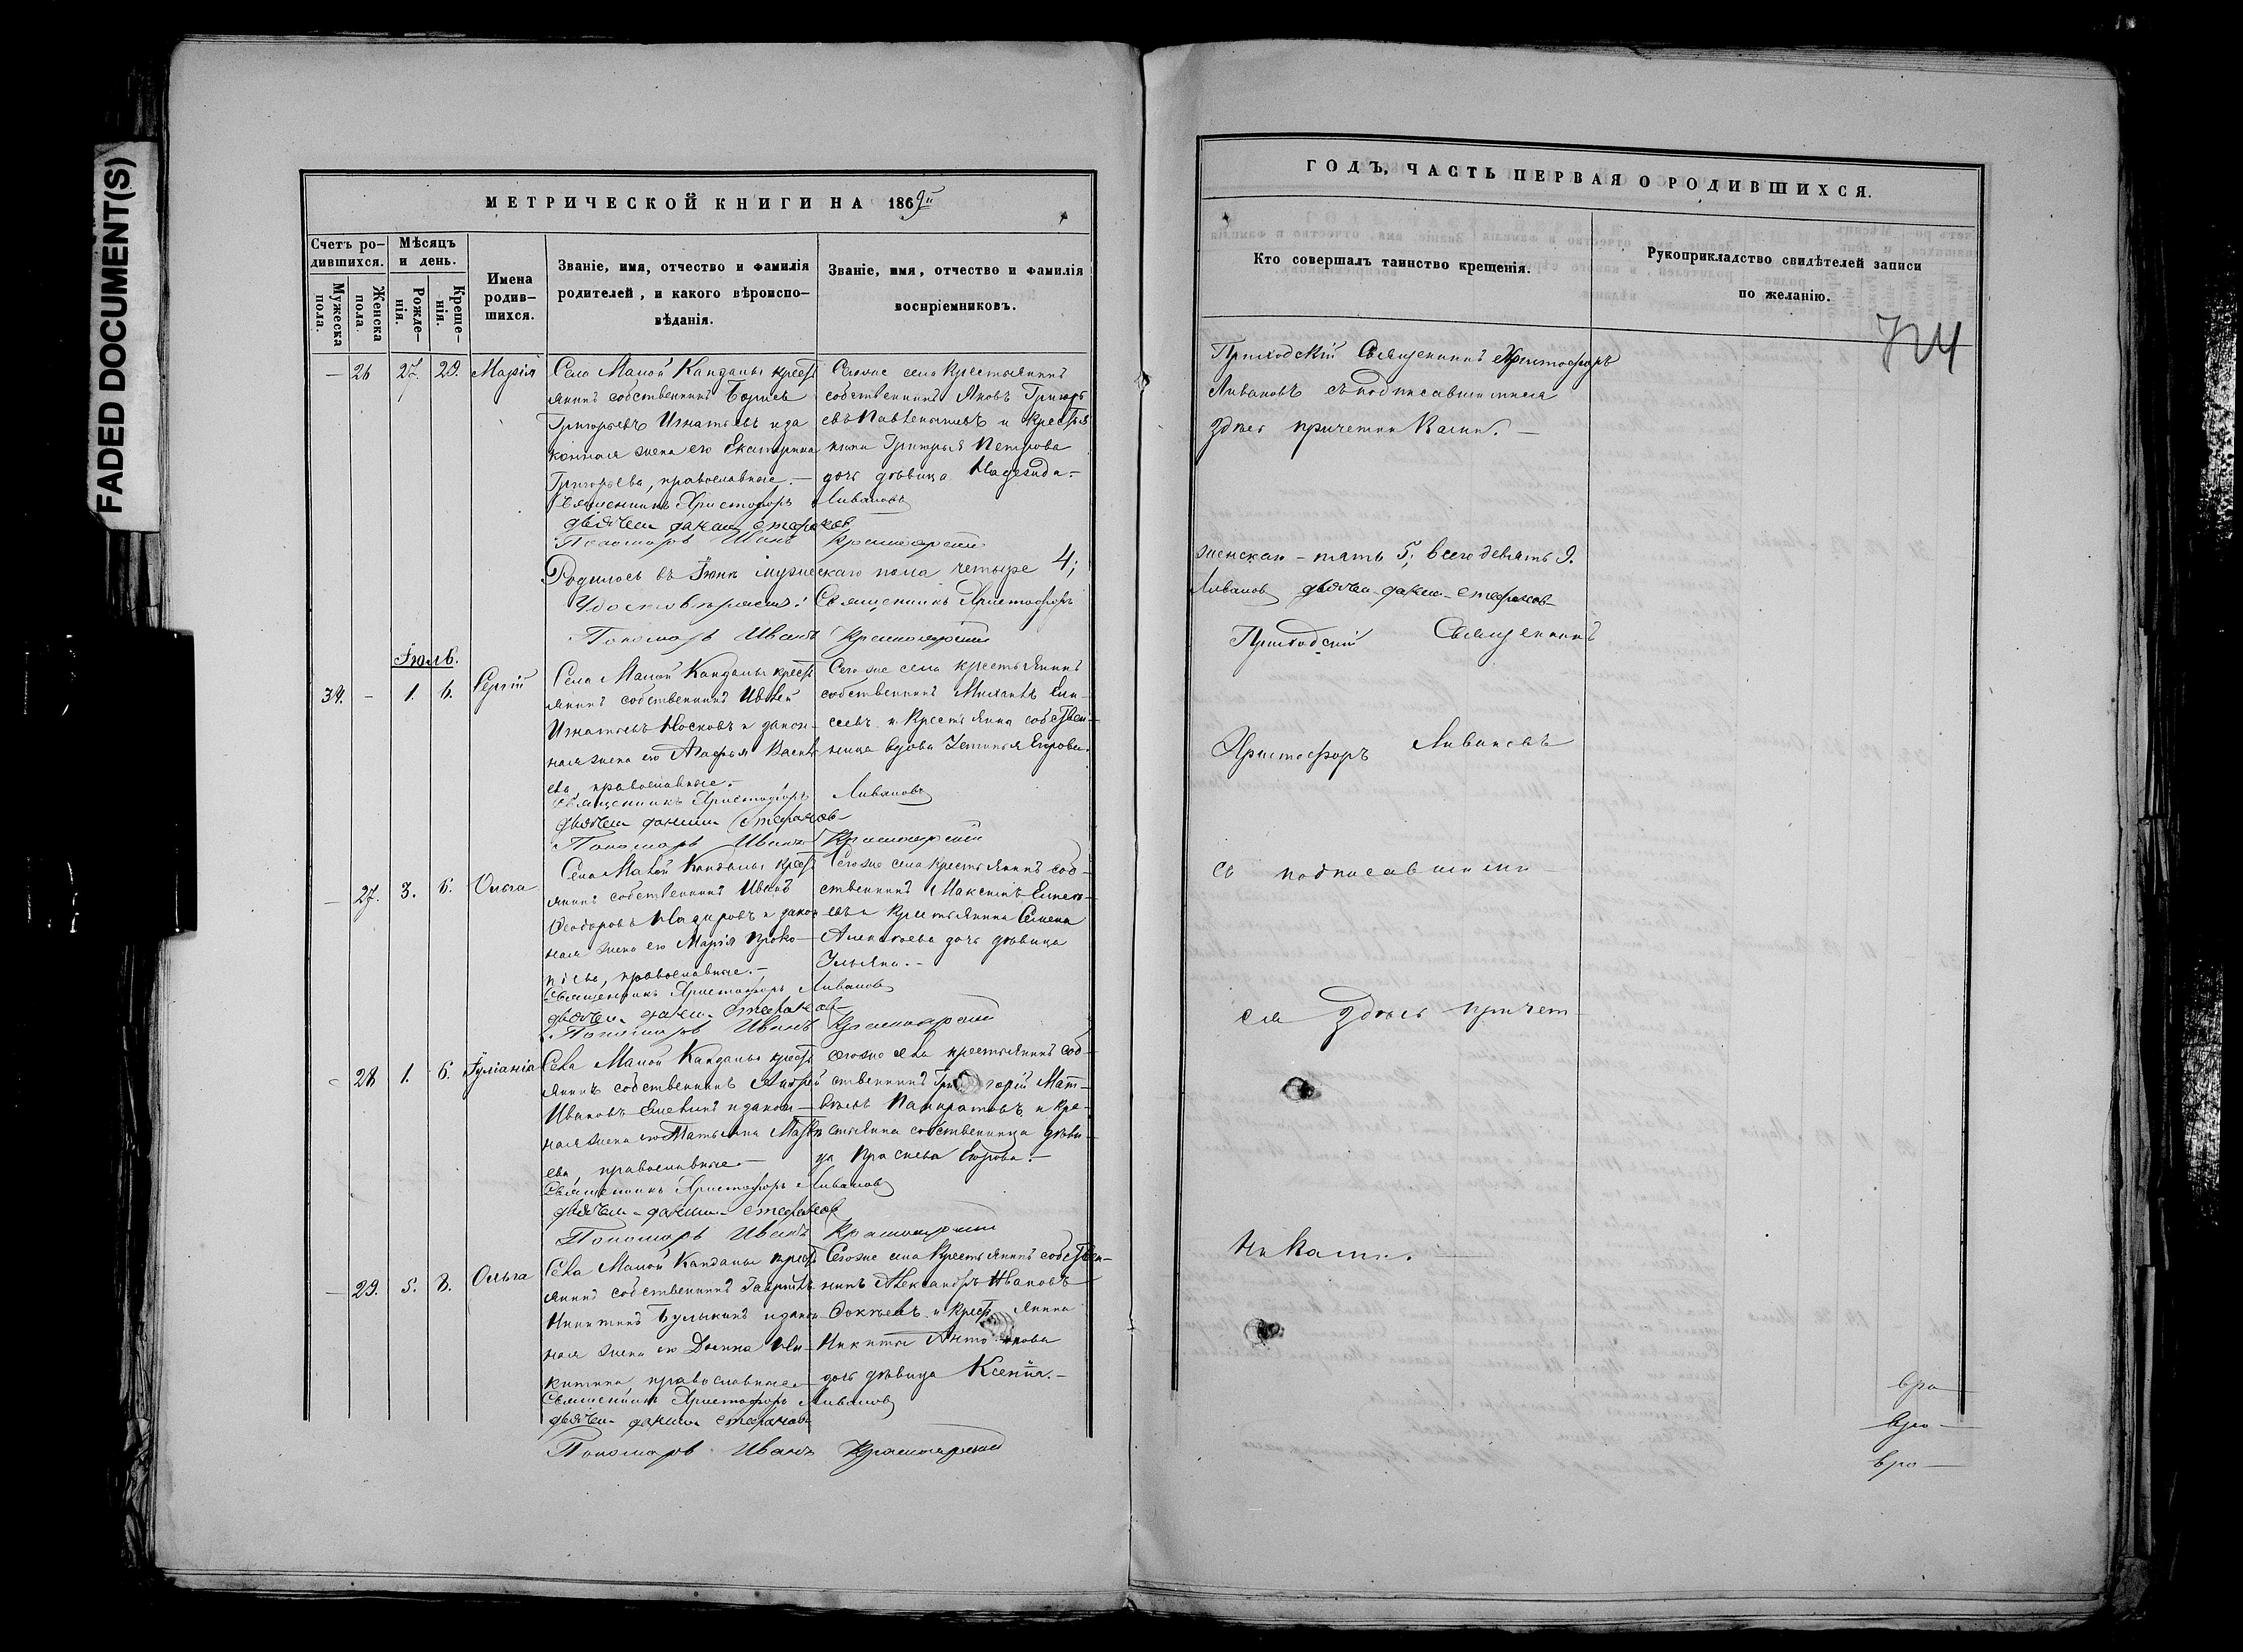 FADED DOCUMENT(S)
МЕТРИЧЕСКОЙ КНИГИ НА 1869й
Счетъ родившихся.
Мужеска пола.
Женска пола.
Мѣсяцъ и день.
Рожденія.
Крещенія.
Имена родившихся.
Званіе, имя, отчество и фамилія родителей, и какого вѣроисповѣданія.
Званіе, имя, отчество и фамилія воспріемниковъ.
— 26 27. 29. Марія
Села Малой Кандалы крест
янинъ собственникъ Борисъ
Григорьевъ Игнатьевъ и за
конная жена его Екатерина
Григорьева, православные. —
Священникъ Христофоръ Ливановъ
Дьячекъ Стефановъ
Пономарь Иванъ Красноярскій
Сегоже села крестьянинъ
собственникъ Яковъ Григорь
евъ и крестья
нина Григорья Петрова
дочь дѣвица Надежда. —
Родилось въ Іюнѣ мужескаго пола четыре 4;
Удостовѣряютъ: Священникъ Христофоръ
Пономарь Иванъ Красноярскій
Іюль.
34. — 1. 6. Сергій
Села Малой Кандалы крест
янинъ собственникъ
Игнатьевъ Носковъ и закон—
ная жена его Агафья Василь
ева, православные. —
Священникъ Христофоръ Ливановъ
Дьячекъ Стефановъ
Пономарь Иванъ Красноярскій
Сегоже села крестьянинъ
собственникъ Михаилъ Ели—
сеевъ и крестьянка собствен—
ница вдова Устинья Егорова.
— 27. 3. 6. Ольга
Села Малой Кандалы крест
янинъ собственникъ Иванъ
Ѳеодоровъ Назаровъ и закон
ная жена его Марія Проко—
піева, православные. —
Священникъ Христофоръ Ливановъ
Дьячекъ Стефановъ
Пономарь Иванъ Красноярскій
Сегоже села крестьянинъ соб—
ственникъ Максимъ Емелья—
евъ и крестьянина Семена
Алексѣева дочь дѣвица
Ульяна. —
— 28 1. 6. Іуліанія
Села Малой Кандалы крест
янинъ собственникъ Андрей
Ивановъ Елевинъ и закон—
ная жена его Татьяна Матвѣ
ева, православные. —
Священникъ Христофоръ Ливановъ
Дьячекъ Стефановъ
Пономарь Иванъ Красноярскій
Сегоже села крестьянинъ соб—
ственникъ Григорій Мат—
вѣевъ Панкратовъ и кре—
стьянка собственница дѣви—
ца Прасковья Егорова. —
— 29. 5. 8. Ольга
Села Малой Кандалы крест
янинъ собственникъ Гаврилъ
Никитинъ Булыкинъ и закон
ная жена его Домна Ни—
китина православные
Священникъ Христофоръ Ливановъ
Дьячекъ Стефановъ
Пономарь Иванъ Красноярскій
Сегоже села крестьянинъ собствен—
никъ Александръ Ивановъ
Фокѣевъ и крестьянина
Никиты Антонова
дочь дѣвица Ксенія. —
ГОДЪ, ЧАСТЬ ПЕРВАЯ О РОДИВШИХСЯ.
Кто совершалъ таинство крещенія.
Рукоприкладство свидѣтелей записи по желанію.
724
Приходскій Священникъ Христофоръ
Ливановъ съ подписавшимися
здѣсь причетниками. —
женскаго — пять 5; всего девять 9.
Ливановъ Дьячекъ Стефановъ
Приходскій Священникъ
Христофоръ Ливановъ
съ подписавшими
ся здѣсь причет
никами.